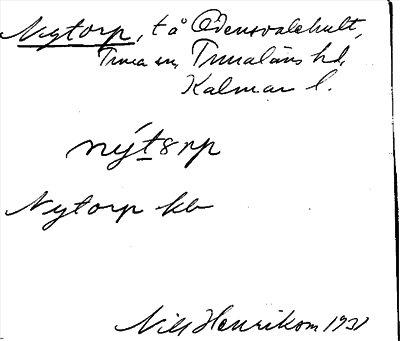 Nytorp, t å Odensvalehult,
Tuna sn, Tunaläns hd,
Kalmar l.
nýt8rp
Nytorp kb
Nils Henrikson 1931